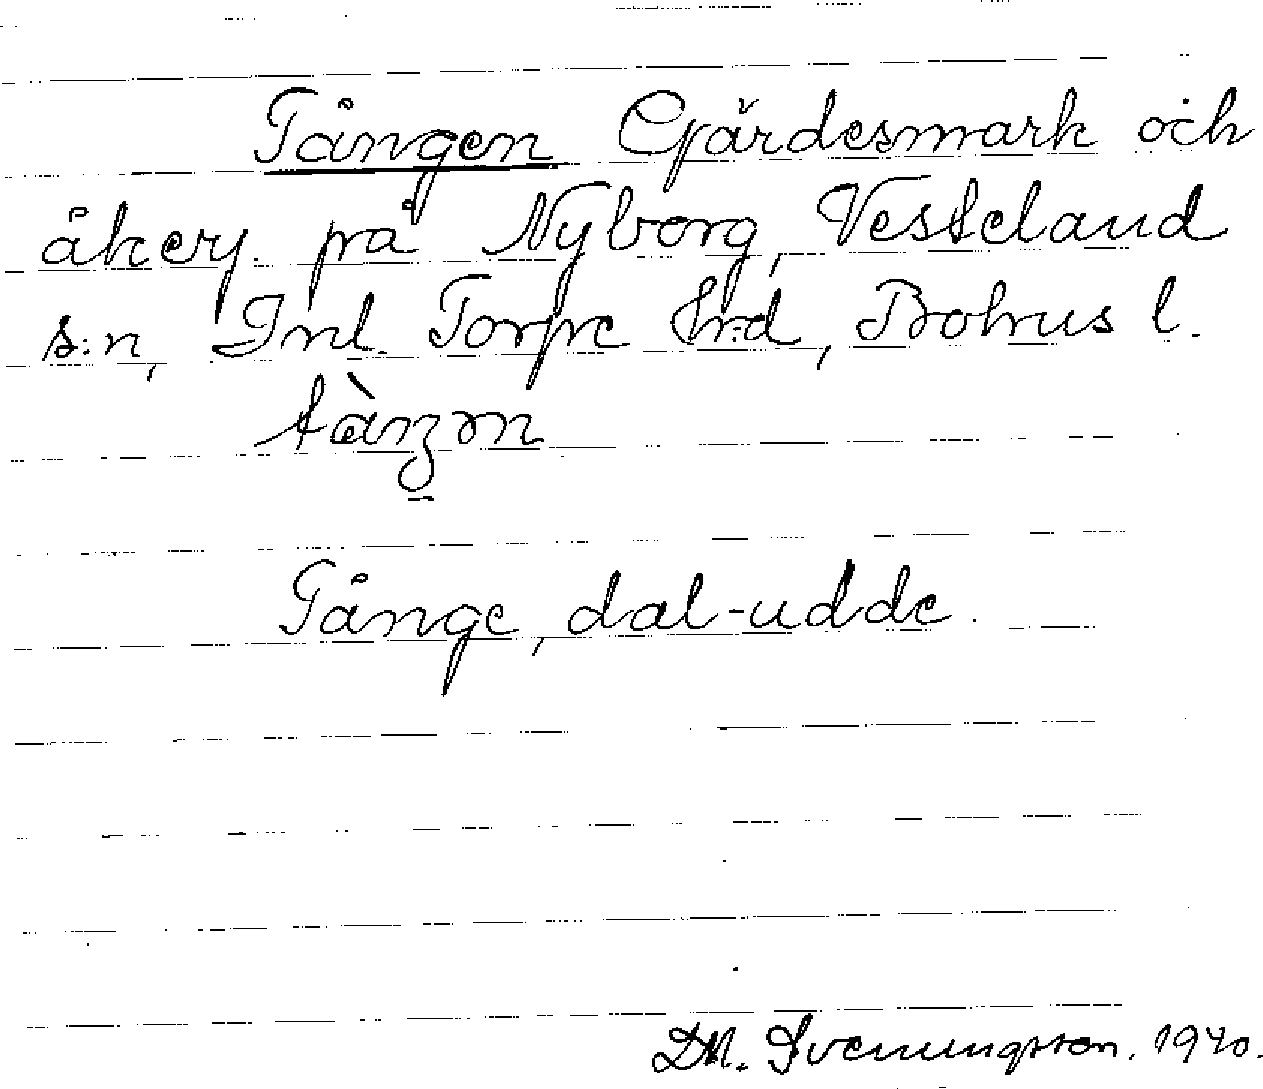 Tången Gärdesmark och
åkerj. på Nyborg, Vesteland
s:n, Inl. Torpe hrd, Bohus l.
tàŋən
Tånge, dal-udde.
D.N. Svenungsson. 1940.